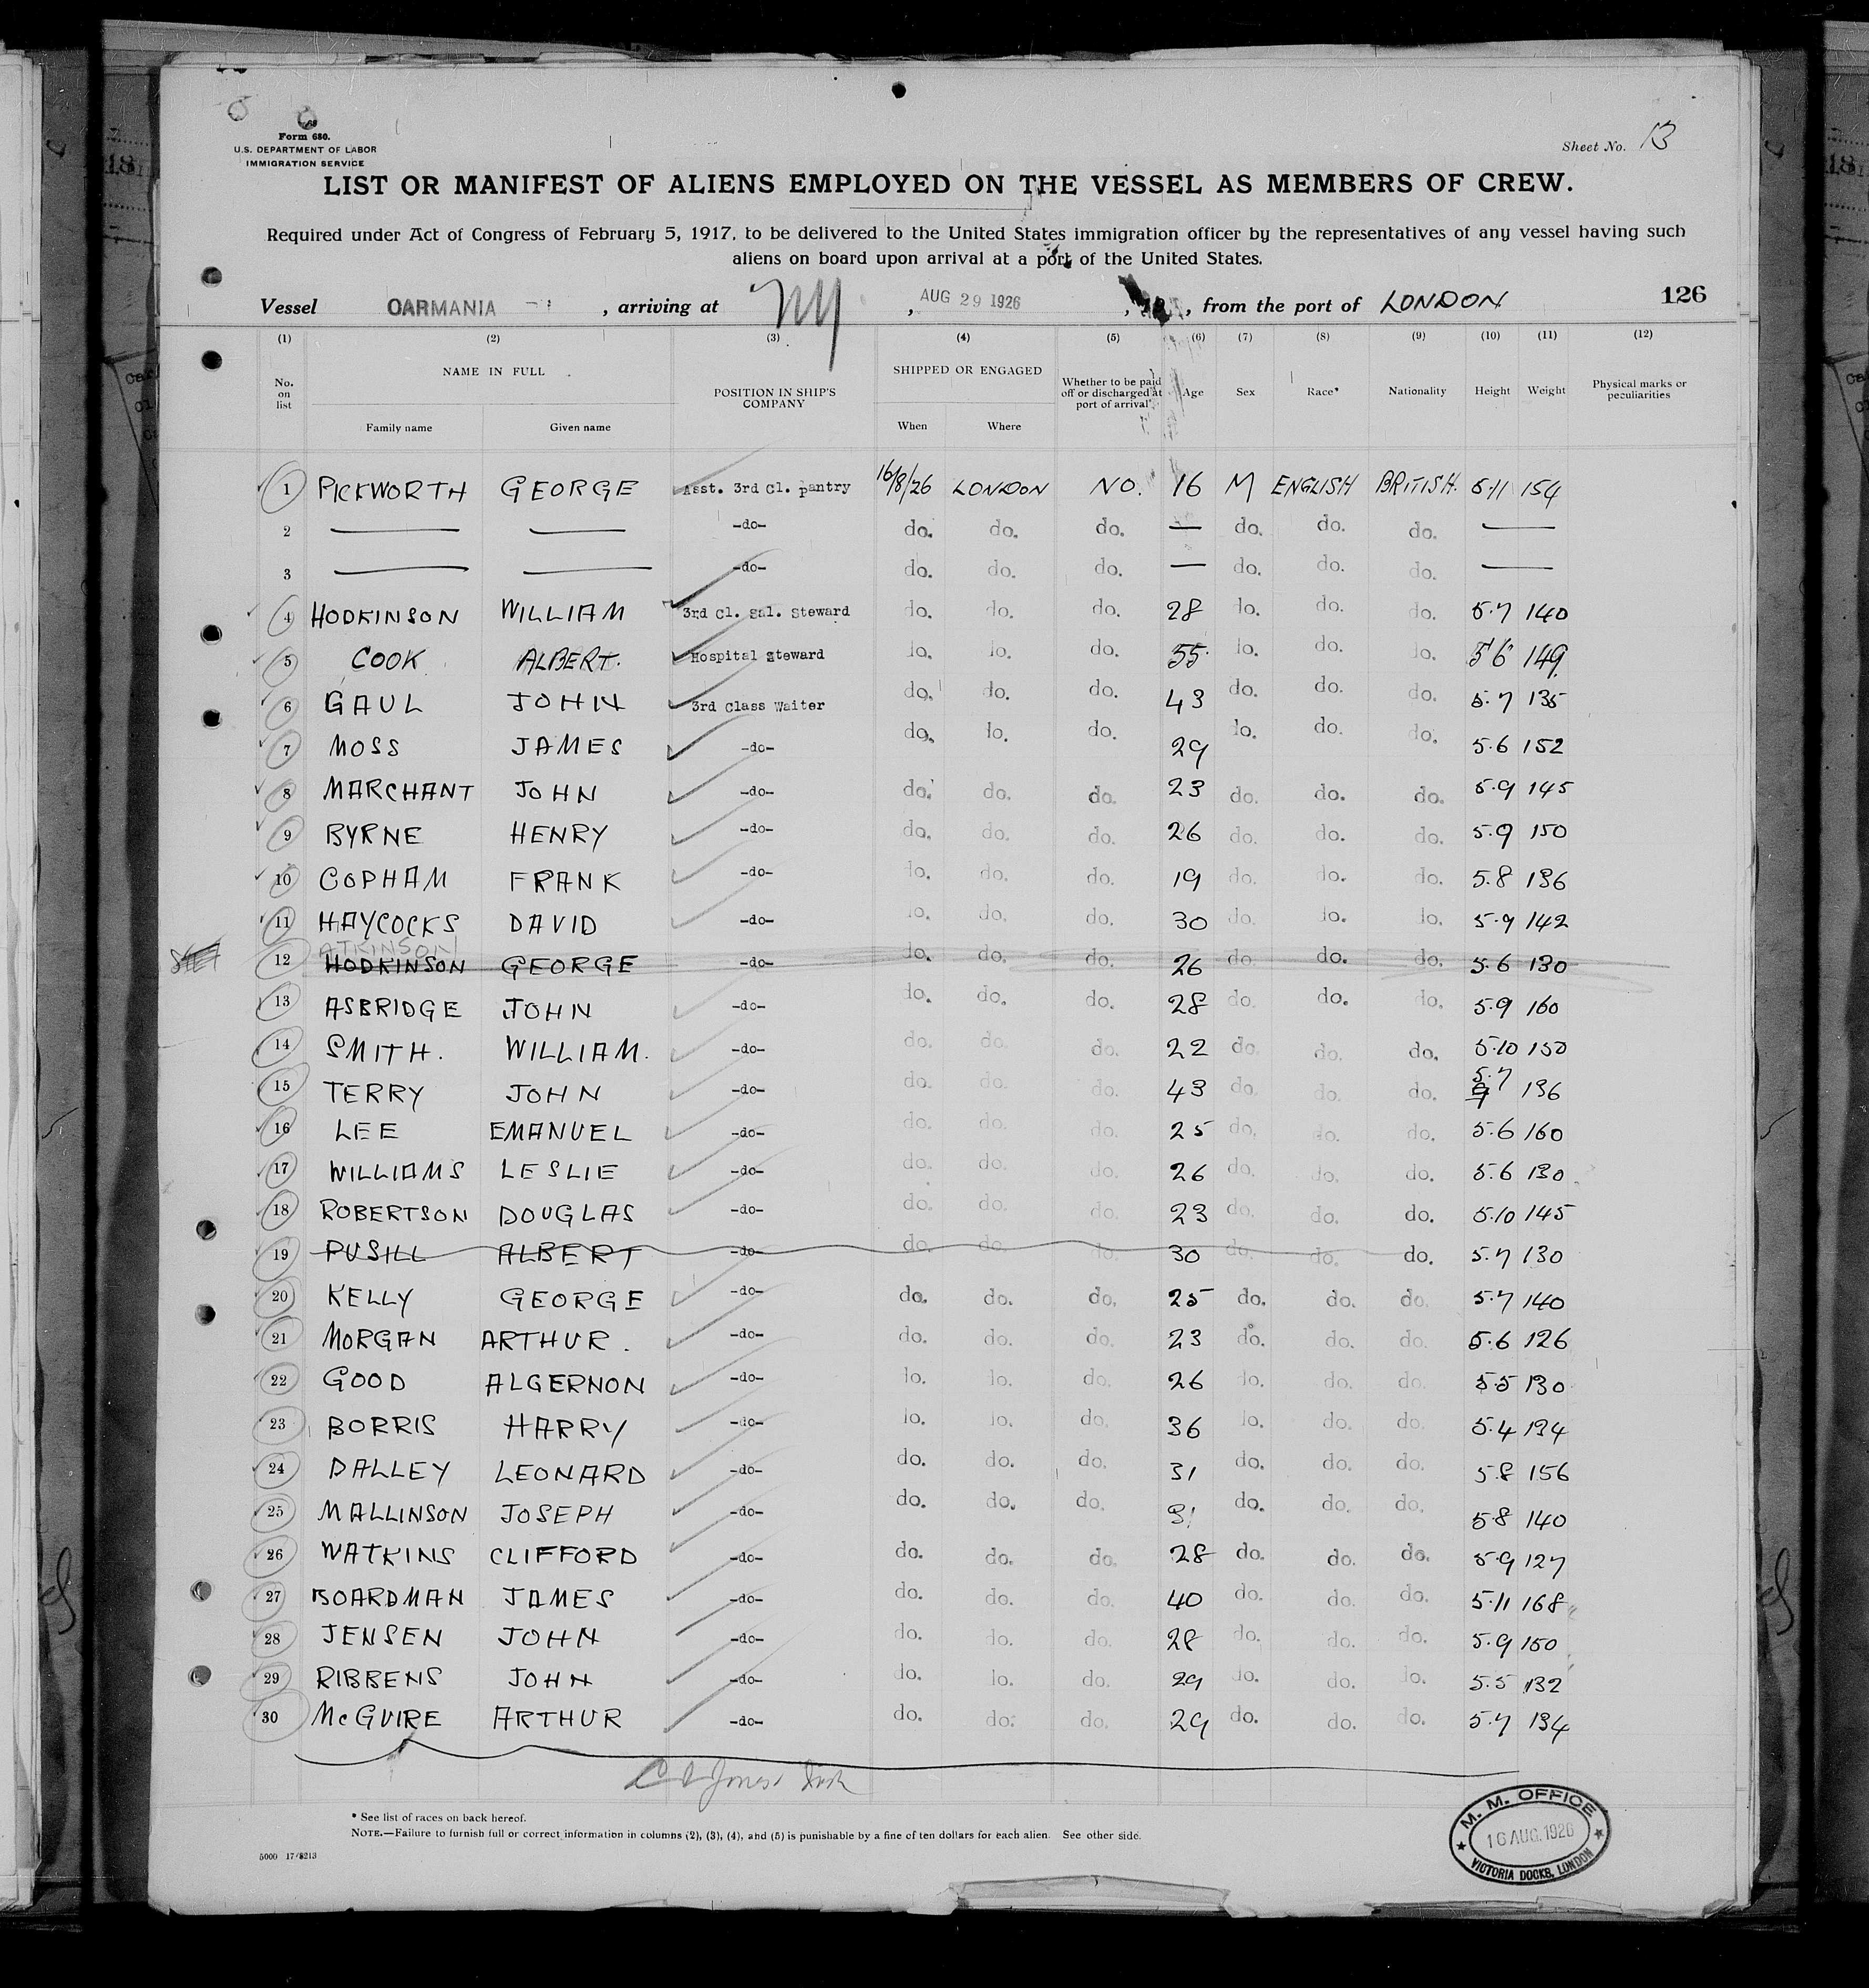 68
Form 680.
U.S. DEPARTMENT OF LABOR
IMMIGRATION SERVICE
Sheet No. 13
LIST OR MANIFEST OF ALIENS EMPLOYED ON THE VESSEL AS MEMBERS OF CREW.
Required under Act of Congress of February 5, 1917, to be delivered to the United States immigration officer by the representatives of any vessel having such
aliens on board upon arrival at a port of the United States.
Vessel CARMANIA , arriving at NY , AUG 29 1926 , from the port of LONDON 126
(1) (2) (3) (4) (5) (6) (7) (8) (9) (10) (11) (12)
No. on list NAME IN FULL Family name Given name POSITION IN SHIP'S COMPANY SHIPPED OR ENGAGED When Where Whether to be paid off or discharged at port of arrival Age Sex Race* Nationality Height Weight Physical marks or peculiarities
1 PICKWORTH GEORGE Asst. 3rd Cl. pantry 16/8/26 LONDON NO. 16 M ENGLISH BRITISH. 5.11 154
2 — — -do- do. do. do. — do. do. do. —
3 — — -do- do. do. do. — do. do. do. —
4 HODKINSON WILLIAM 3rd Cl. Sal. Steward do. do. do. 28 do. do. do. 5.7 140
5 COOK ALBERT. Hospital Steward do. do. do. 55 do. do. do. 5'6 149
6 GAUL JOHN 3rd Class Waiter do. do. do. 43 do. do. do. 5.7 135
7 MOSS JAMES -do- do. do. do. 29 do. do. do. 5.6 152
8 MARCHANT JOHN -do- do. do. do. 23 do. do. do. 5.9 145
9 BYRNE HENRY -do- do. do. do. 26 do. do. do. 5.9 150
10 COPHAM FRANK -do- do. do. do. 19 do. do. do. 5.8 136
11 HAYCOCKS DAVID -do- do. do. do. 30 do. do. do. 5.9 142
ATKINSON
12 HODKINSON GEORGE -do- do. do. do. 26 do. do. do. 5.6 130
13 ASBRIDGE JOHN -do- do. do. do. 28 do. do. do. 5.9 160
14 SMITH. WILLIAM. -do- do. do. do. 22 do. do. do. 5.10 150
15 TERRY JOHN -do- do. do. do. 43 do. do. do. 5.7 136
16 LEE EMANUEL -do- do. do. do. 25 do. do. do. 5.6 160
17 WILLIAMS LESLIE -do- do. do. do. 26 do. do. do. 5.6 130
18 ROBERTSON DOUGLAS -do- do. do. do. 23 do. do. do. 5.10 145
19 PUSILL ALBERT -do- do. do. do. 30 do. do. do. 5.7 130
20 KELLY GEORGE -do- do. do. do. 25 do. do. do. 5.7 140
21 MORGAN ARTHUR. -do- do. do. do. 23 do. do. do. 5.6 126
22 GOOD ALGERNON -do- do. do. do. 26 do. do. do. 5.5 130
23 BORRIS HARRY -do- do. do. do. 36 do. do. do. 5.4 134
24 DALLEY LEONARD -do- do. do. do. 31 do. do. do. 5.8 156
25 MALLINSON JOSEPH -do- do. do. do. 31 do. do. do. 5.8 140
26 WATKINS CLIFFORD -do- do. do. do. 28 do. do. do. 5.9 127
27 BOARDMAN JAMES -do- do. do. do. 40 do. do. do. 5.11 168
28 JENSEN JOHN -do- do. do. do. 28 do. do. do. 5.9 150
29 RIBBENS JOHN -do- do. do. do. 29 do. do. do. 5.5 132
30 McGUIRE ARTHUR -do- do. do. do. 29 do. do. do. 5.7 134
Jones
* See list of races on back hereof.
NOTE.—Failure to furnish full or correct information in columns (2), (3), (4), and (5) is punishable by a fine of ten dollars for each alien. See other side.
5000 17/8213
M. M. OFFICE
16 AUG. 1926
VICTORIA DOCKS, LONDON